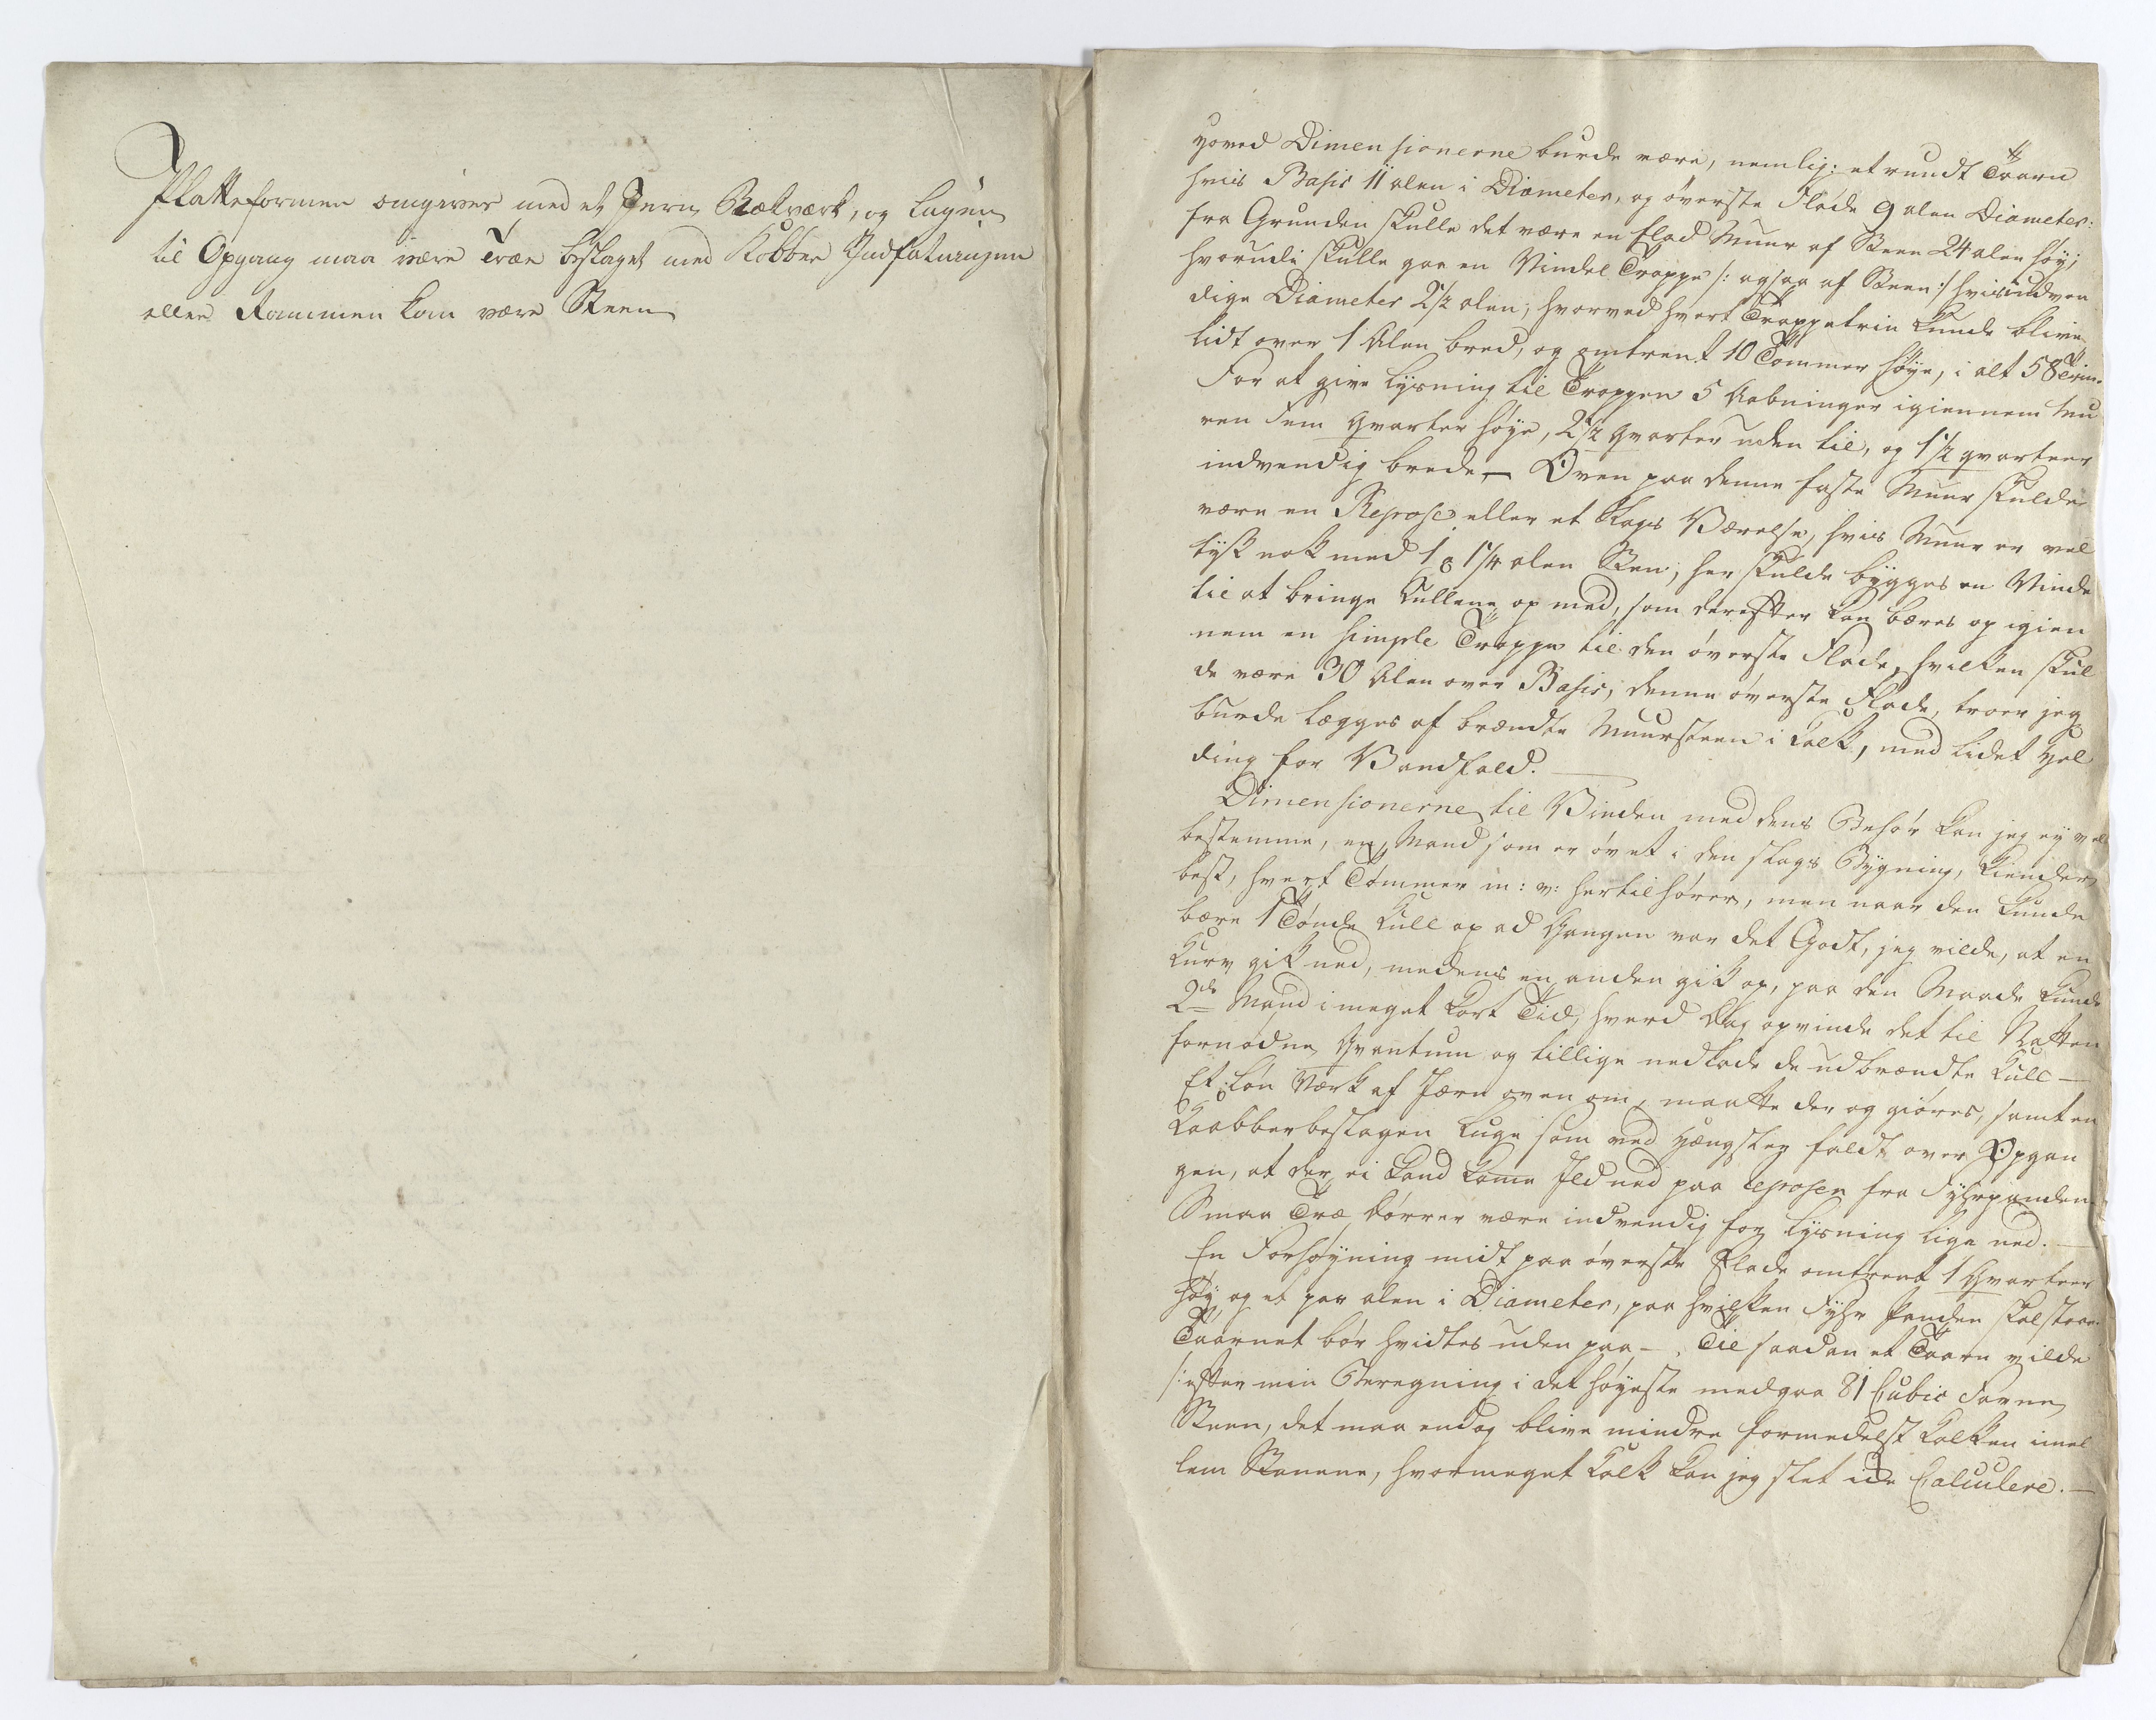 Platteformen omgives med et Jern Rækværk, og lugen
til Opgang maa være Træe beslaget med Kobber Indfatningen
eller Rammen kan være Steen
hoved Dimensionerne burde være, nemlig: et rundt Taarn
hvis Basis 11 alen i Diameter, og øverste Flade 9 alen Diameter:
fra Grunden skulle det være en flad Muur af Steen 24 alen høy;
hvorudi skulle gaa en Vindel Trappe /: ogsaa af Steen :/ hvis udven
dige Diameter 2 1/2 alen, hvorved hvert Trappetrin kunde blive
lidt over 1 Alen bred, og omtrent 10 Tommer høye, i alt 58 Trin.
For at give lysning til Trappen 5 Aabninger igiennem Mu
ren Fem qvarter høye, 2 1/2 qvarter uden til, og 1 1/2 qvarteer
indvendig brede. — Oven paa denne faste Muur skulde
være en Repose eller et slags Værelse, hvis Muur er vel
tyk nok med 1 a 1 1/4 alen Steen; her skulde bygges en Vinde
til at bringe Kullene op med, som derefter kan bæres op igien
nem en simple Trappe til den øverste Flade, hvilken skul
de være 30 Alen over Basis; denne øverste Flade, troer jeg
burde lægges af brændte Muursteen i Kalk, med lidet Hel
ding for Vandfald. —
Dimensionerne til Vinden med dens Behør kan jeg ey vel
bestemme, en Mand som er øvet i den slags Bygning, kiender
best, hvert Tømmer m: v: hertil hører, men naar den kunde
bære 1 Tønde Kull op ad Gangen var det Godt, jeg vilde, at en
Kurv gik ned, medens en anden gik op, paa den Maade kunde
2de Mand i meget kort Tid, hverd Dag opvinde det til Natten
fornødne Qvantum og tillige nedlade de udbrændte Kull —
Et løn Værk af Jærn oven om, maatte der og giøres, samt en
Kaabberbeslagen Luge som ved Hængsler faldt over Opgan
gen, at der ei kand kome Ild ned paa reposen fra Fyhrpanden
Smaa Træ Dørrer være indvendig for lysning lige ned. —
En Forhøyning midt paa øverste Flade omtrent 1 Qvarteer
høy, og et par alen i Diameter, paa hvilken Fyhr Panden skal staae.
Taarnet bør hvidtes uden paa —. Til saadan et Taarn vilde
/: efter min Beregning i det høyeste medgaa 81 Cubic Favne
Steen, det maa endog blive mindre formedelst Kalken imel
lem Stenene, hvormeget Kalk kan jeg slet icke Calculere. —